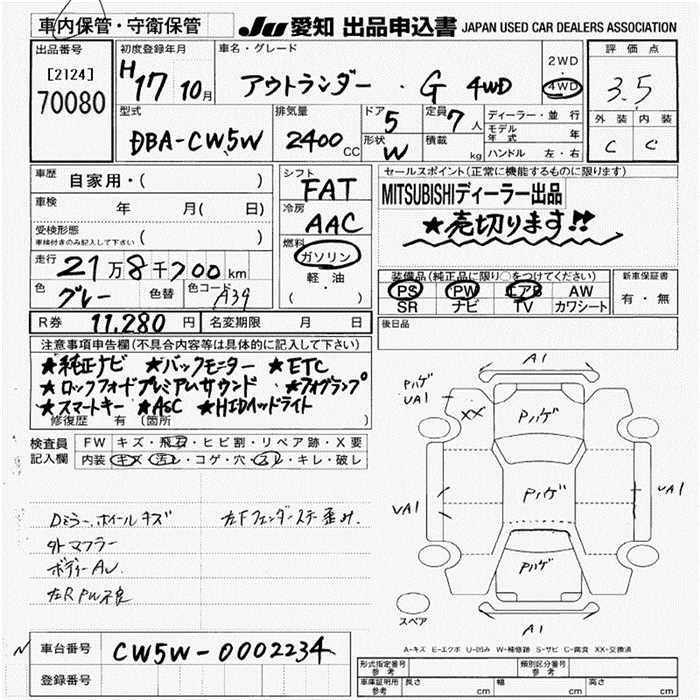 車内保管・守衛保管 JU愛知 出品申込書 JAPAN USED CAR DEALERS ASSOCIATION
出品番号 初度登録年月 車名・グレード 2WD ・ 4WD 評価点
[2124] 70080 H17 10月 アウトランダー ・ G 4WD 3.5
型式 排気量 ドア 5 定員 7人 ディーラー・並行 外装 内装
DBA-CW5W 2400CC 形状 W 積載 kg モデル年式 年 C C
ハンドル 左・右
車歴 自家用・( ) シフト FAT セールスポイント(正常に機能するものに限ります)
車検 年 月( 日) 冷房 AAC MITSUBISHIディーラー出品
受検形態 車検付きのみ記入して下さい ( ) ★売切ります!!
走行 21万8千700km 燃料 ガソリン 軽・油 ( ・ )
色 グレー 色替 色コード A39
装備品(純正品に限り○をつけてください) 新車保証書
PS PW エアB AW 有・無
SR ナビ TV カワシート
R券 11,280円 名変期限 月 日 後日品
注意事項申告欄(不具合内容等は具体的に記入して下さい)
★純正ナビ ★バックモニター ★ETC
★ロックフォードプレミアムサウンド ★フォグランプ
★スマートキー ★ASC ★HIDヘッドライト
修復歴 有 (箇所 )
検査員記入欄 FW キズ・飛石・ヒビ割・リペア跡・X要
内装 キズ・汚レ・コゲ・穴・スレ・キレ・破レ
Dミラー.ホイールキズ 左Fフェンダーステー歪み.
外マフラー
ボディーAU
左RPW不良
A1
Pハゲ UA1 XX Pハゲ
UA1 Pハゲ UA1
Pハゲ
スペア A1
A-キズ E-エクボ U-凹み W-補修跡 S-サビ C-腐食 XX-交換済
車台番号 CW5W-0002234
登録番号
形式指定番号 参考 類別区分番号 参考
車庫証明用 参考 長さ cm 幅 cm 高さ cm